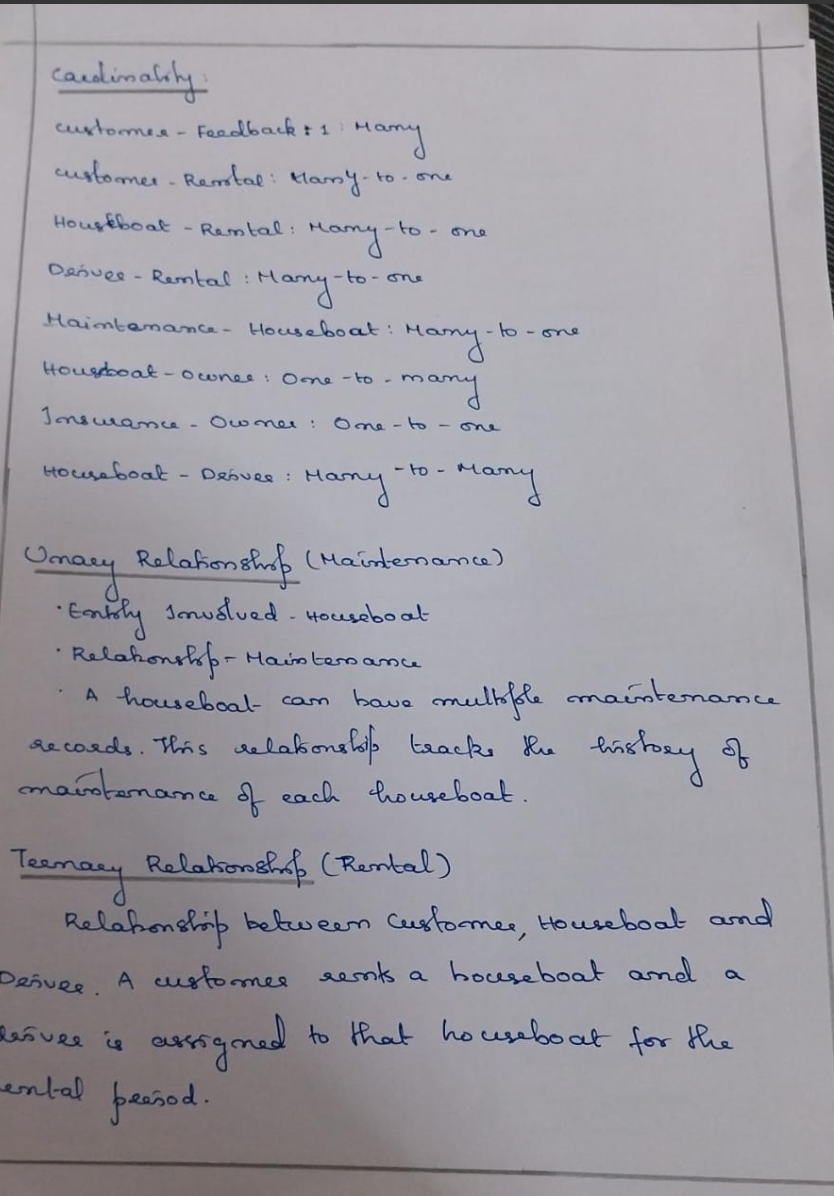 Cardinality:
Customer - Feedback : 1 : Many
Customer - Rental : Many-to-one
Houseboat - Rental : Many-to-one
Driver - Rental : Many-to-one
Maintenance - Houseboat : Many-to-one
Houseboat - Owner : One-to-many
Insurance - Owner : One-to-one
Houseboat - Driver : Many-to-Many
Unary Relationship (Maintenance)
· Entity Involved - Houseboat
· Relationship - Maintenance
· A houseboat can have multiple maintenance
records. This relationship tracks the history of
maintenance of each houseboat.
Ternary Relationship (Rental)
Relationship between Customer, Houseboat and
Driver. A customer rents a houseboat and a
river is assigned to that houseboat for the
ental period.